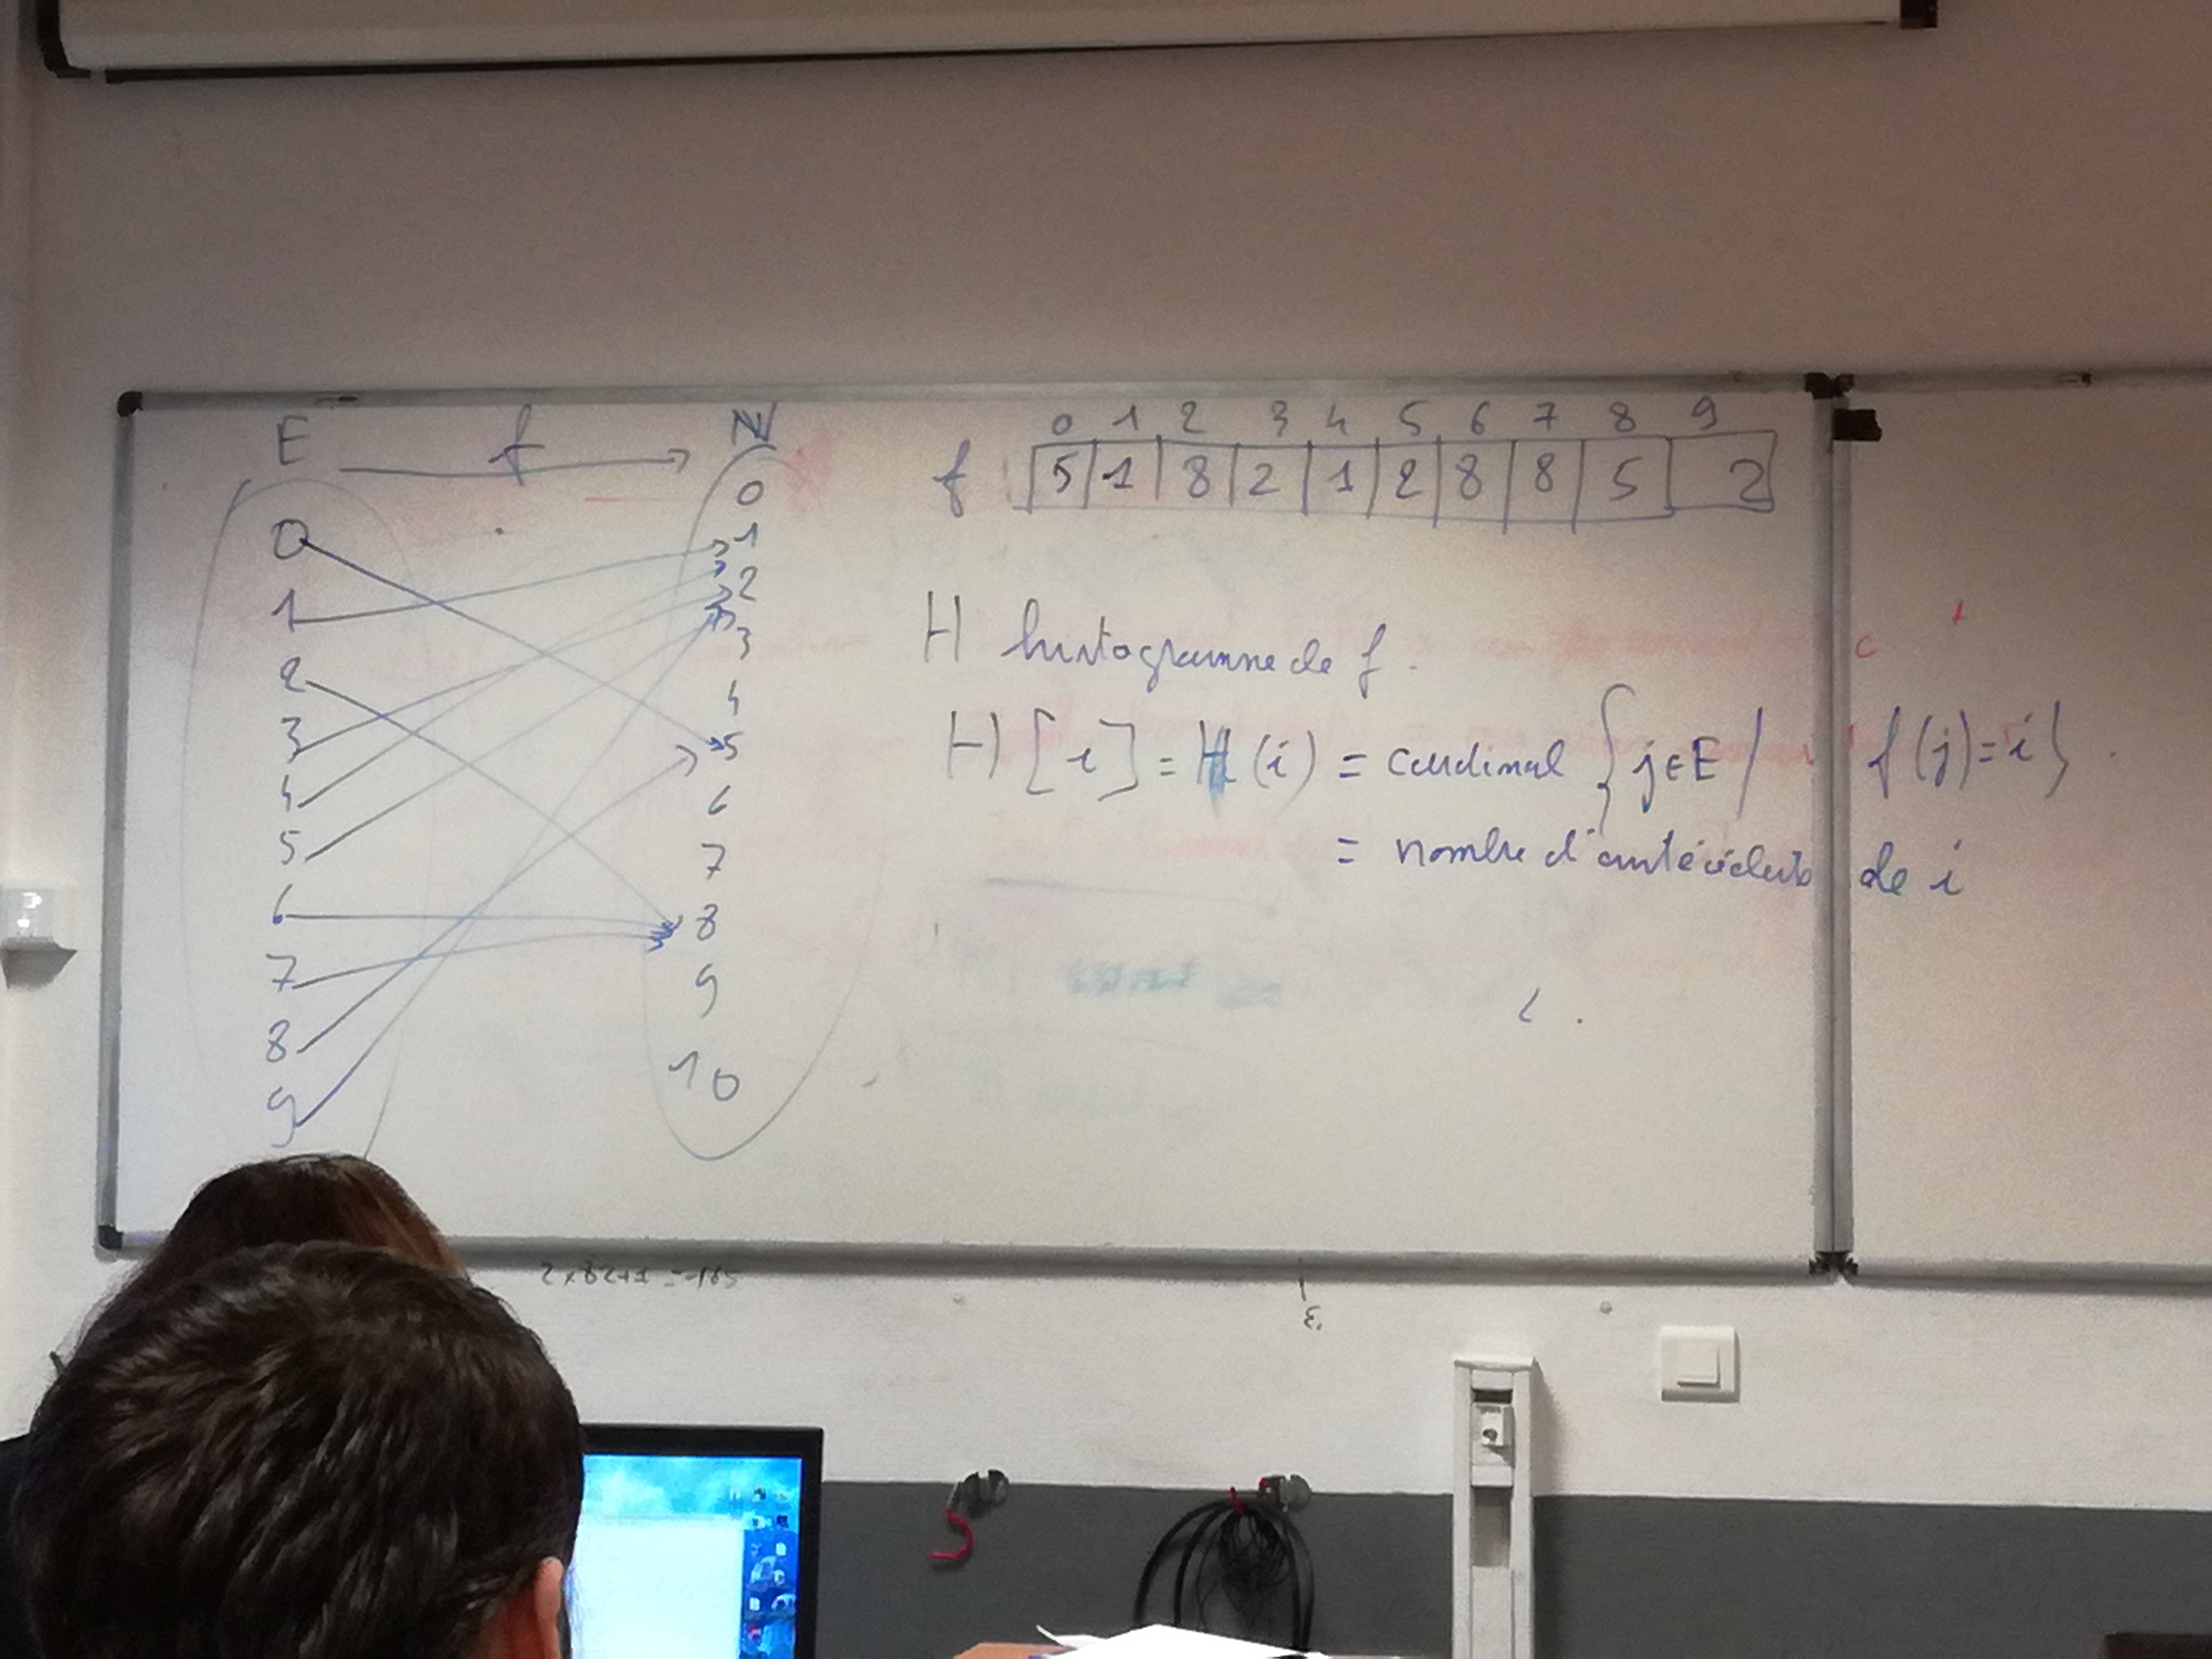 E f ℕ
0
1
2
3
4
5
6
7
8
9
0
1
2
3
4
5
6
7
8
9
10
0 1 2 3 4 5 6 7 8 9
f 5 1 8 2 1 2 8 8 5 2
H histogramme de f.
H[i] = H(i) = cardinal { j ∈ E / f(j) = i }.
= nombre d'antécédents de i